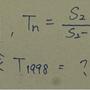 , Tn = S2 / S2 -
T1998 = ?